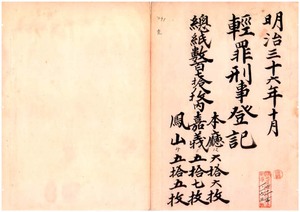 明治三十六年十月
輕罪刑事登記
總紙數百七拾八枚內
本廳〃六拾六枚
嘉義〃五拾七枚
鳳山〃五拾五枚